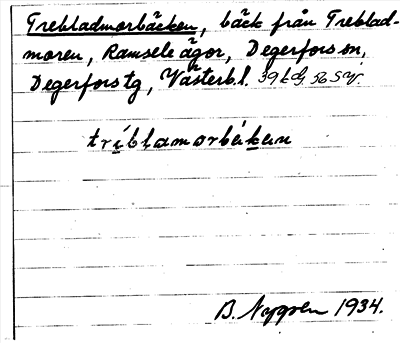 Trebladmorbäcken, bäck från Treblad-
moren, Ramsele ägor, Degerfors sn,
Degerfors tg, Västerb. l.
tríblamorbäken
B. Nygren 1934.